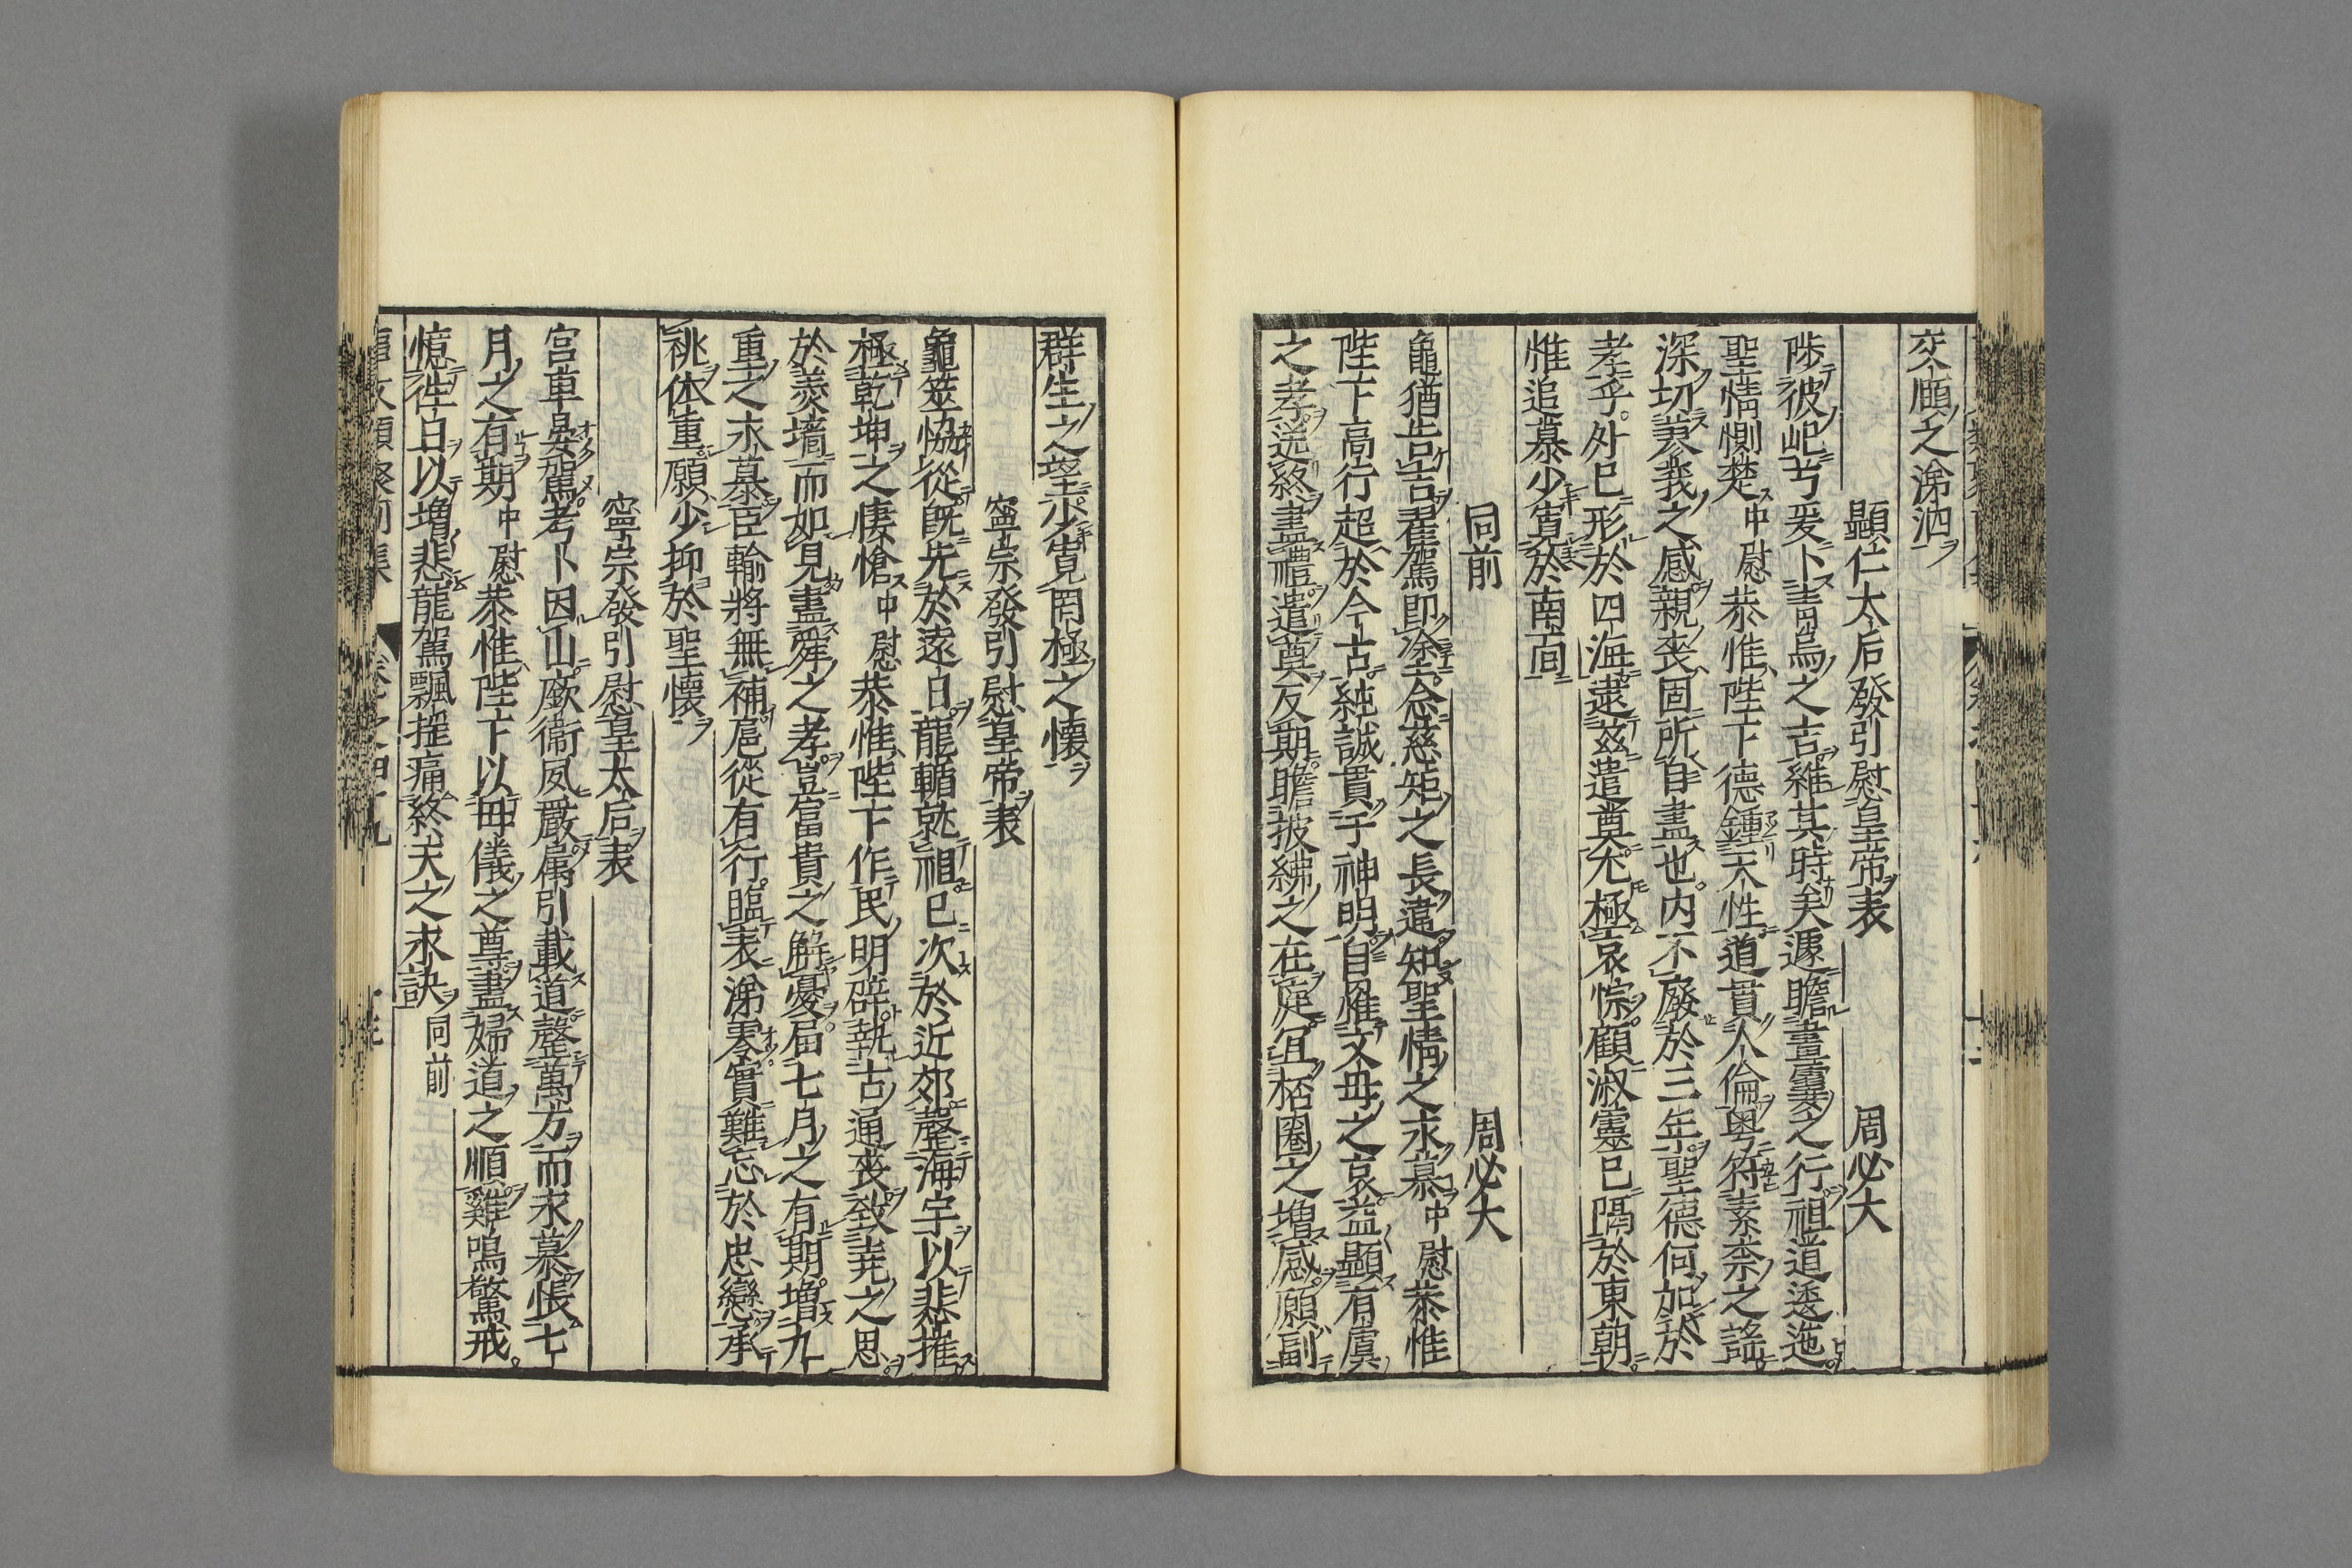 交頤之涕泗
顯仁太后發引慰皇帝表 周必大
陟彼屺兮爰卜青烏之吉維其時矣遽瞻畫霎之行祖道透迤
聖情惻楚中慰恭惟陛下德鍾天性道貫人倫粤符素柰之謠
深切蓼莪之感親丧固所自盡也内不廢於三年聖德何加於
孝乎外已形於四海逮兹遣奠尤極哀悰顧淑靈已隔於東朝
惟追慕少寬於南面
同前 周必大
龜猶告吉翟駕即塗言念慈矩之長違知聖情之永慕中慰恭惟
陛下高行超於今古純誠貫于神明自罹文母之哀益顯有虞
之孝送終盡禮遣奠及期瞻披綈之在庭宜桮圈之增感願副
群生之望少寬罔極之懷
寧宗發引慰皇帝表
龜筮恊從既先於遠日龍輴就祖已次於近郊慤海宇以悲摧
極乾坤之悽愴中慰恭惟陛下作民明辟執古通丧致堯之思
於羮墻而如見盡舜之孝豈富貴之解憂届七月之有期增九
重之永慕臣輸將無補扈從有行臨表涕零實難忘於忠戀承
祧体重願少抑於聖懷
寧宗發引慰皇太后表
宫車晏駕考卜因山廞衛夙嚴属引載道慤萬方而永慕悵七
月之有期中慰恭惟陛下以母儀之尊盡婦道之順雞鳴驚戒
憶往日以增悲龍駕飄揺痛終天之永訣同前